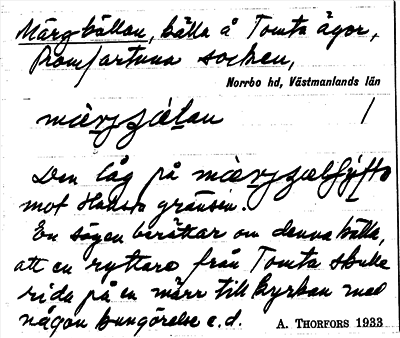 Märgkällan, källa å Tomta ägor,
Romfartuna socken,
Norrbo hd, Västmanlands län
mærjɕælan /
Den låg på
mot Hans gränsen.
En sägen berättar om denna källa,
att en ryttare från Tomta skulle
rida på en märr till kyrkan med
någon kungörelse e.d. A. THORFORS 1933